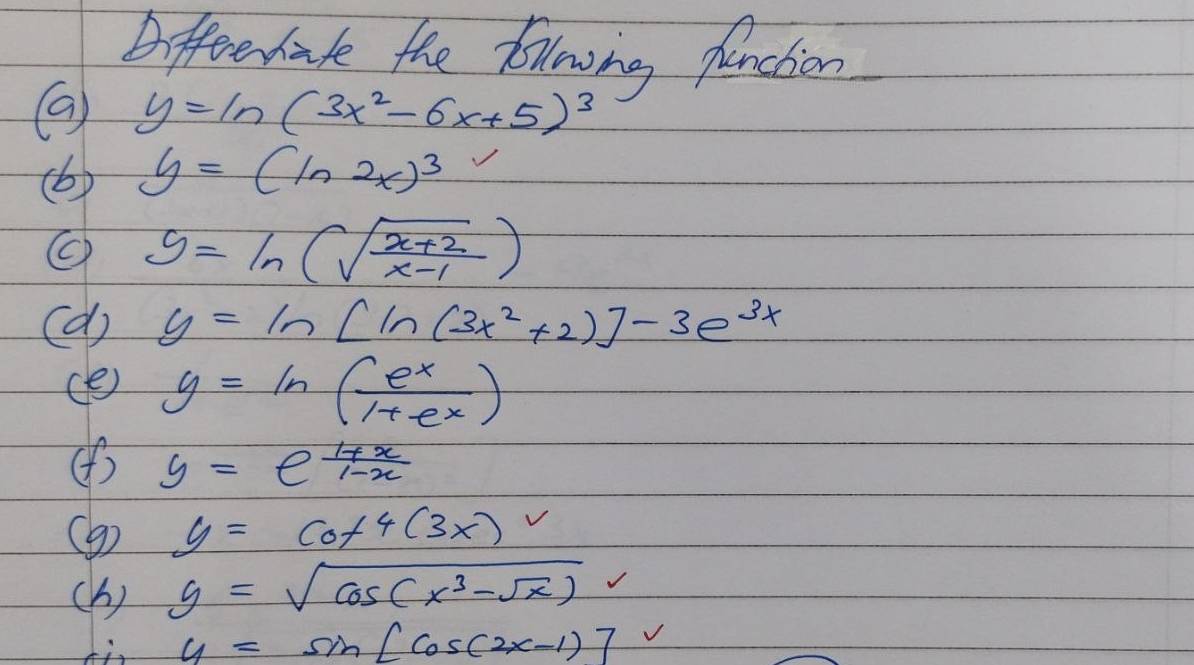 Differentiate the following function
(a) y = ln (3x² - 6x + 5)³
(b) y = (ln 2x)³ ✓
(c) y = ln (√(x+2)/(x-1))
(d) y = ln [ln (3x² + 2)] - 3e^3x
(e) y = ln (e^x/(1+e^x))
(f) y = e^((1+x)/(1-x))
(g) y = cot⁴(3x) ✓
(h) y = √cos(x³ - √x) ✓
(i) y = sin [cos(2x-1)] ✓